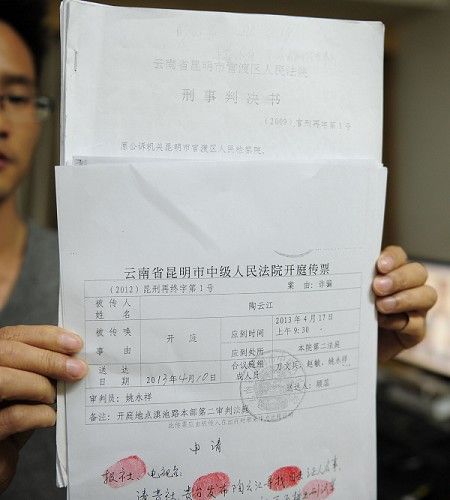 云南省昆明市官渡区人民法院
刑事判决书
(2009)官刑再字第1号
原公诉机关昆明市官渡区人民检察院。
云南省昆明市中级人民法院开庭传票
(2012)昆刑再终字第1号 案由:诈骗
被传人姓名 陶云江
被传唤事由 开庭 应到时间 2013年4月17日上午9:30
应到处所 本院第二法庭
送达日期 2013年4月10日 合议庭组成人员 刀文兵、赵敏、姚永祥
审判员:姚永祥 送达人:顾蕊
备注:开庭地点滇池路本部第二审判法庭
此传票
申请
报社、电视台:
请贵社
发布陶云江
找
证人